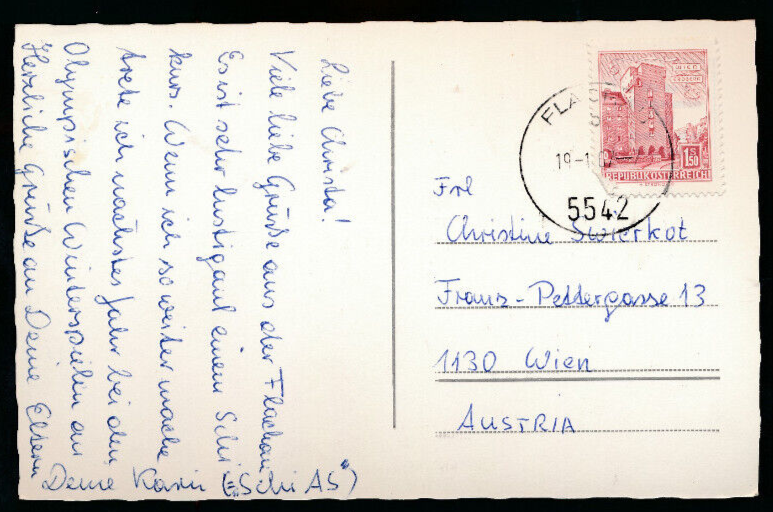 Liebe Christa!
Viele liebe Grüße aus der Flachau
Es ist sehr lustig auf einem Schi
kurs. Wenn ich so weiter mache
trete ich nächstes Jahr bei den
Olympischen Winterspielen an
Herzliche Grüße an Deine Eltern
Deine Karin (="Schi AS")
WIEN
REPUBLIK ÖSTERREICH
S 1,50
FLA
19-1
5542
Frl
Christine Swierkot
Franz-Pettergasse 13
1130 Wien
AUSTRIA